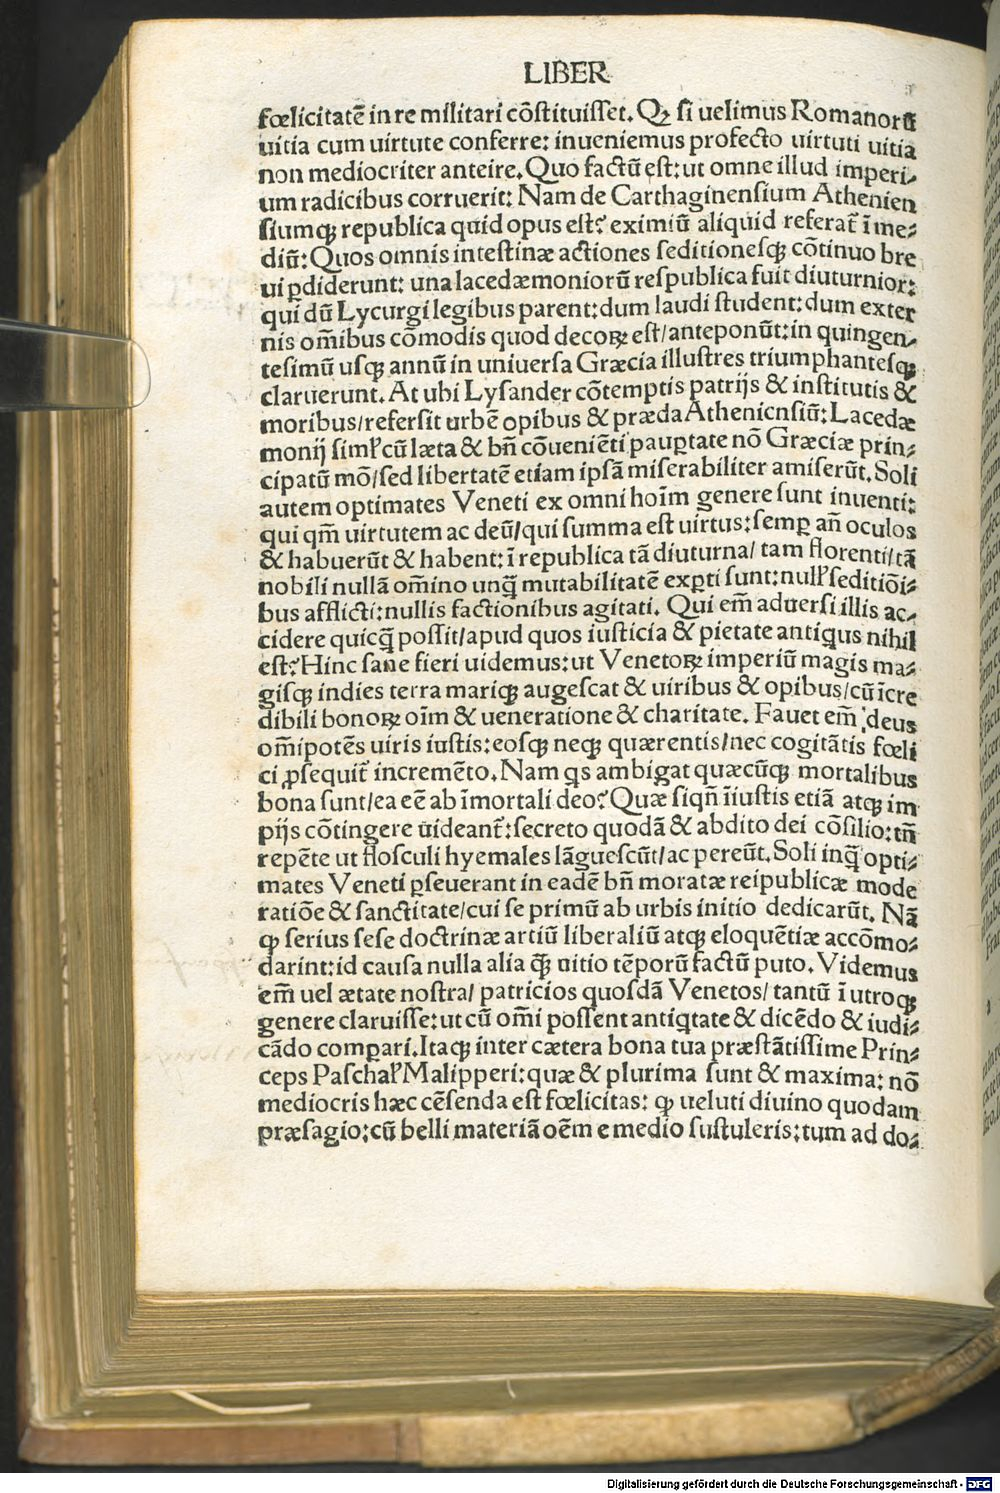 LIBER
fœlicitatē in re militari cōstituisset. Qꝫ si uelimus Romanorū
uitia cum uirtute conferre: inueniemus profecto uirtuti uitia
non mediocriter anteire. Quo factū est: ut omne illud imperi⸗
um radicibus corruerit: Nam de Carthaginensium Athenien
siumqꝫ republica quid opus est? eximiū aliquid referat̄ ī me⸗
diū: Quos omnis intestinæ actiones seditionesqꝫ cōtinuo bre
ui ꝑdiderunt: una lacedæmoniorū respublica fuit diuturnior:
qui dū Lycurgi legibus parent: dum laudi student: dum exter
nis om̄ibus cōmodis quod decoꝝ est/anteponūt: in quingen⸗
tesimū usqꝫ annū in uniuersa Græcia illustres triumphantesqꝫ
claruerunt. At ubi Lysander cōtemptis patrijs & institutis &
moribus/refersit urbē opibus & præda Atheniensiū: Lacedæ
monij siml̓ cū læta & bn̄ cōueniēti pauꝑtate nō Græciæ prin⸗
cipatū mō/sed libertatē etiam ipsā miserabiliter amiserūt. Soli
autem optimates Veneti ex omni hoīm genere sunt inuenti:
qui qm̄ uirtutem ac deū/qui summa est uirtus: semꝑ an̄ oculos
& habuerūt & habent: ī republica tā diuturna/ tam florenti/tā
nobili nullā om̄ino unq̄ mutabilitatē exꝑti sunt: null̓ seditiōi⸗
bus afflicti: nullis factionibus agitati. Qui em̄ aduersi illis ac⸗
cidere quicq̄ possit/apud quos iusticia & pietate antiqus nihil
est? Hinc sane fieri uidemus: ut Venetoꝝ imperiū magis ma⸗
gisqꝫ indies terra mariqꝫ augescat & uiribus & opibus/cū īcre
dibili bonoꝝ oīm & ueneratione & charitate. Fauet em̄ deus
om̄ipotēs uiris iustis: eosqꝫ neqꝫ quærentis/nec cogitātis fœli
ci ꝓsequit̄ incremēto. Nam qs ambigat quæcūqꝫ mortalibus
bona sunt/ea eē ab īmortali deo? Quæ siqn̄ īiustis etiā atqꝫ im
pijs cōtingere uideant̄: secreto quodā & abdito dei cōsilio: tn̄
repēte ut flosculi hyemales lāguescūt/ac pereūt. Soli inq̄ opti⸗
mates Veneti ꝑseuerant in eadē bn̄ moratæ reipublicæ mode
ratiōe & sanctitate/cui se primū ab urbis initio dedicarūt. Nā
ꝙ serius sese doctrinæ artiū liberaliū atqꝫ eloquētiæ accōmo⸗
darint: id causa nulla alia q̄ȝ uitio tēporū factū puto. Videmus
em̄ uel ætate nostra/ patricios quosdā Venetos/ tantū ī utroqꝫ
genere claruisse: ut cū om̄i possent antiqtate & dicēdo & iudi⸗
cādo comꝑari. Itaqꝫ inter cætera bona tua præstātissime Prin⸗
ceps Paschal̓ Malipperi: quæ & plurima sunt & maxima: nō
mediocris hæc cēsenda est fœlicitas: ꝙ ueluti diuino quodam
præsagio: cū belli materiā oēm e medio sustuleris: tum ad do⸗
Digitalisierung gefördert durch die Deutsche Forschungsgemeinschaft - DFG